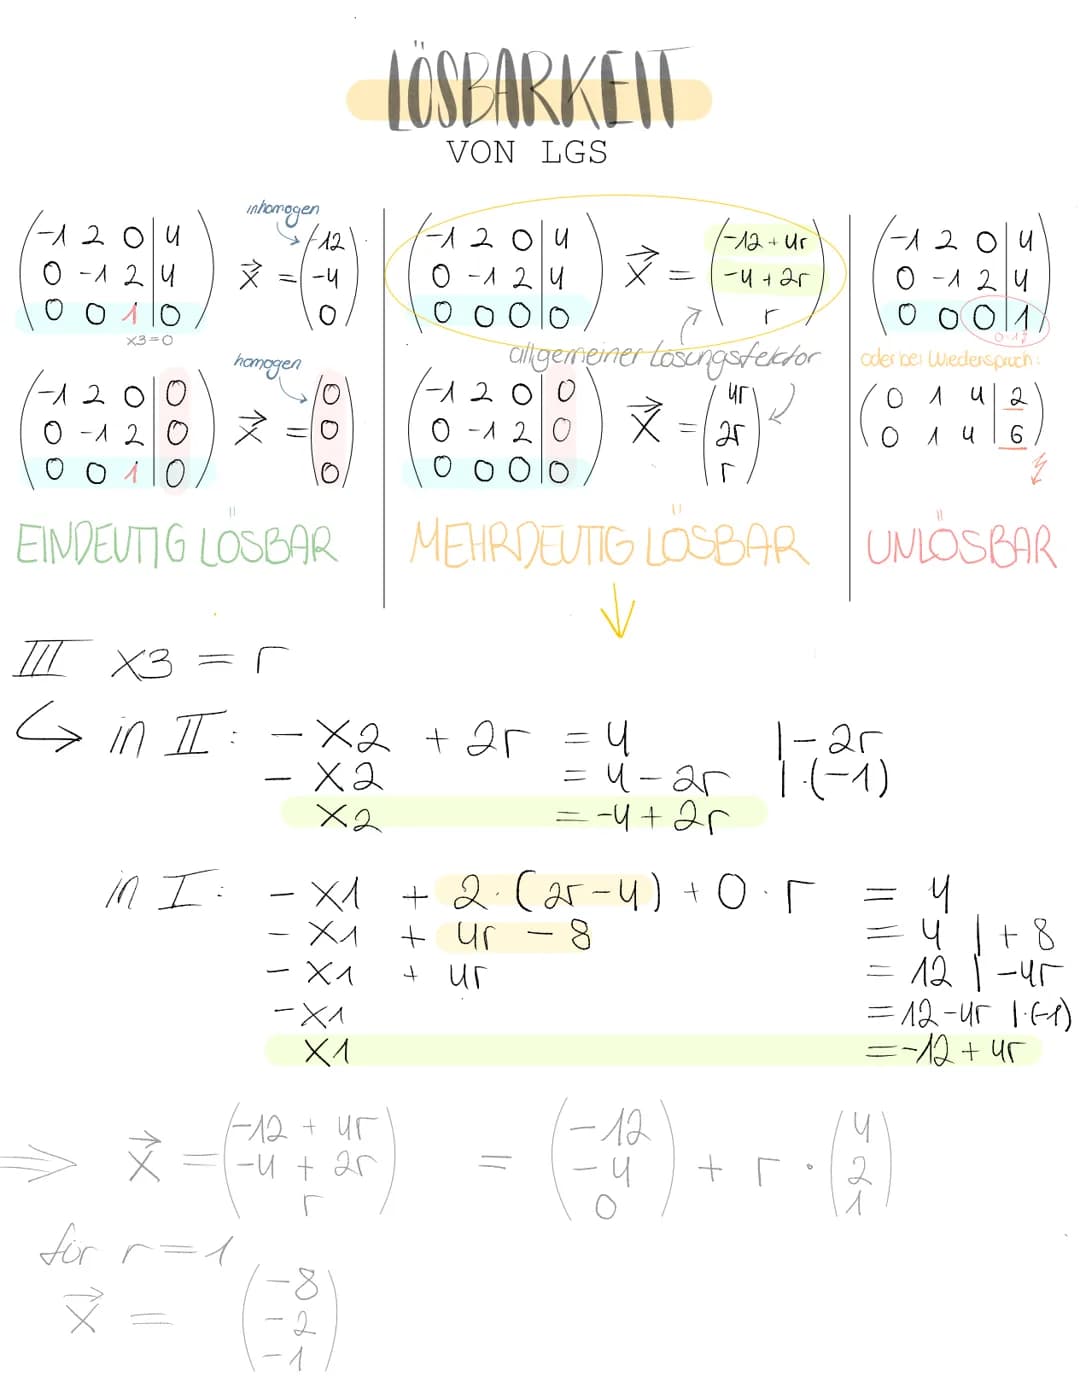 LÖSBARKEIT
VON LGS
inhomogen
(-1 2 0 | 4)
(0 -1 2 | 4)
(0 0 1 | 0)
x3=0
x⃗ = (-12, -4, 0)
homogen
(-1 2 0 | 0)
(0 -1 2 | 0)
(0 0 1 | 0)
x⃗ = (0, 0, 0)
EINDEUTIG LÖSBAR
(-1 2 0 | 4)
(0 -1 2 | 4)
(0 0 0 | 0)
x⃗ = (-12 + 4r, -4 + 2r, r)
allgemeiner Lösungsfektor
(-1 2 0 | 0)
(0 -1 2 | 0)
(0 0 0 | 0)
x⃗ = (4r, 2r, r)
MEHRDEUTIG LÖSBAR
(-1 2 0 | 4)
(0 -1 2 | 4)
(0 0 0 | 1)
oder bei Wiederspruch:
(0 1 4 | 2)
(0 1 4 | 6)
UNLÖSBAR
III x3 = r
↳ in II: - x2 + 2r = 4 |-2r
- x2 = 4-2r |·(-1)
x2 = -4 + 2r
in I: - x1 + 2·(2r-4) + 0·r = 4
- x1 + 4r - 8 = 4 | +8
- x1 + 4r = 12 | -4r
-x1 = 12-4r |·(-1)
x1 = -12 + 4r
⇒ x⃗ = (-12 + 4r, -4 + 2r, r) = (-12, -4, 0) + r · (4, 2, 1)
für r=1
x⃗ = (-8, -2, -1)